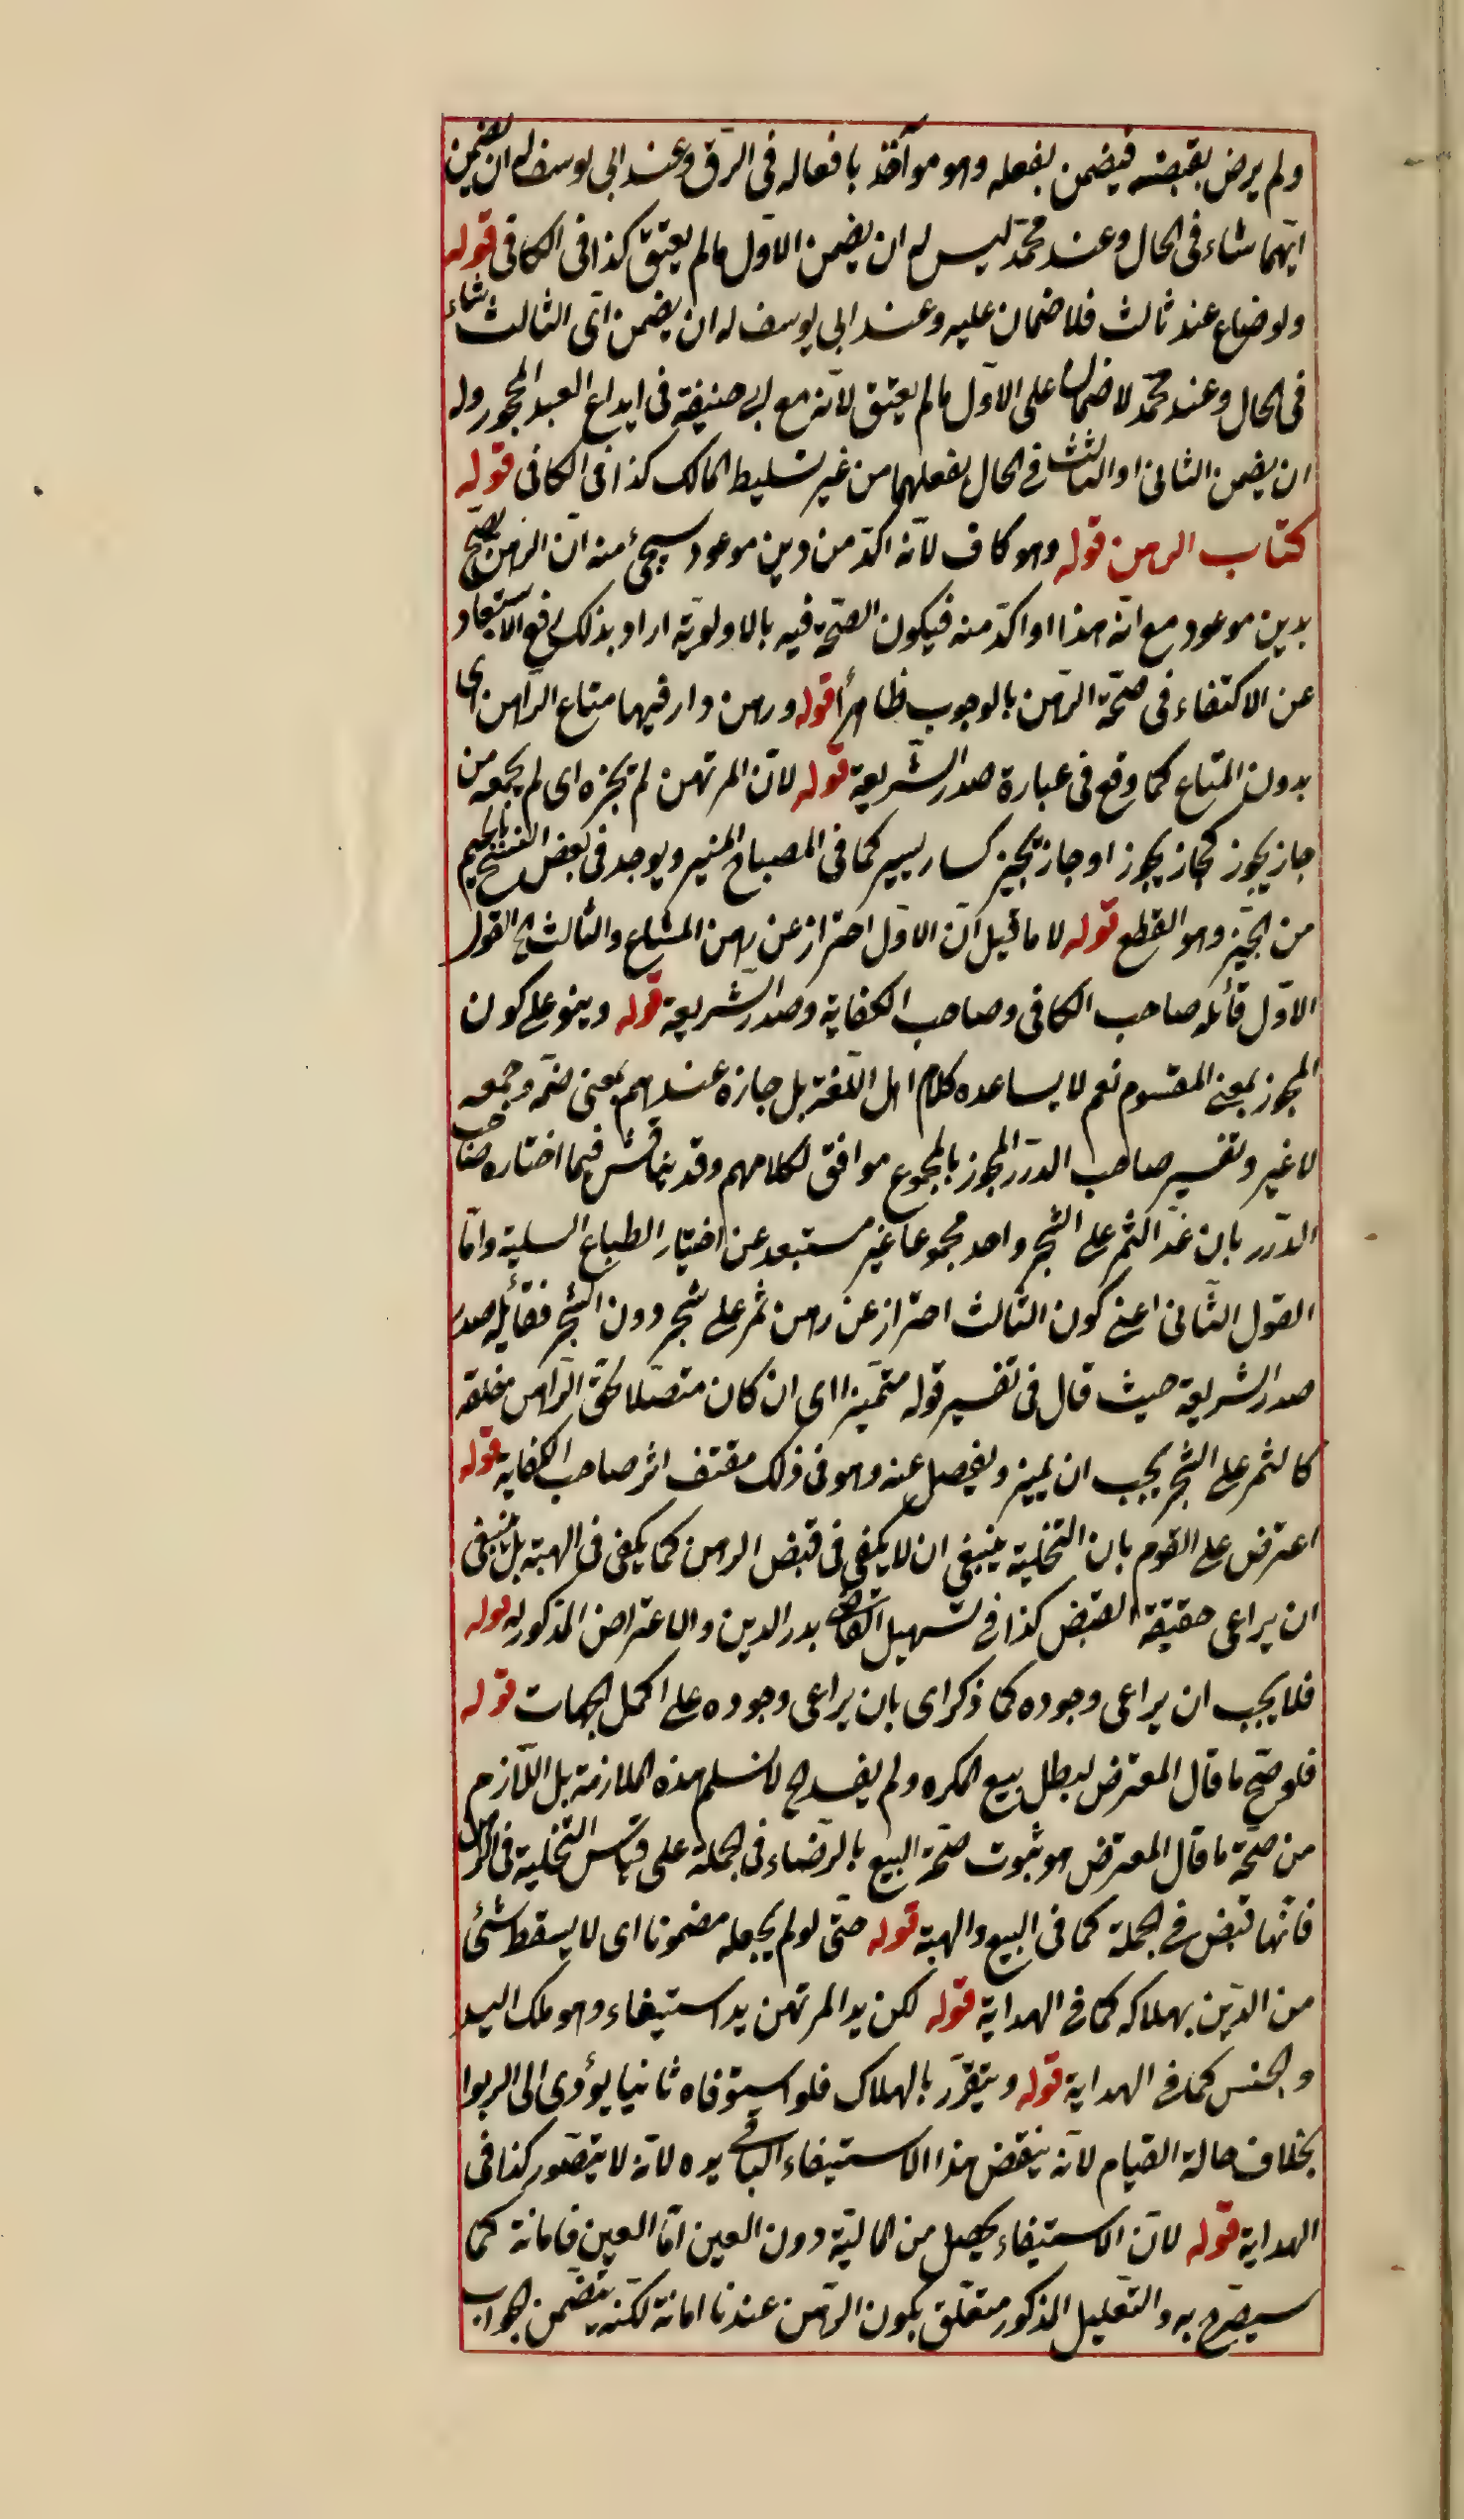 ولم يرض بقبضه فيضمن بفعله وهو مؤاخذ بافعاله فى الرّق وعند ابى يوسف له ان يضمن
ايّهما شاء فى الحال وعند محمّد ليس له ان يضمن الاوّل مالم يعتق كذا فى الكافى قوله
ولو ضاع عند ثالث فلا ضمان عليه وعند ابى يوسف له ان يضمن اىّ الثالث شاء
فى الحال وعند محمّد لا ضمان على الاوّل مالم يعتق لانّه مع ابى حنيفة فى ايداع العبد المحجور وله
ان يضمن الثانى او الثالث فى الحال بفعلهما من غير تسليط المالك كذا فى الكافى قوله
كتاب الرهن قوله وهو كاف لانّه اكدّ من دين موعود سيجئ منه انّ الرهن يصحّ
بدين موعود مع انّه هذا اواكدّ منه فيكون الصّحّة فيه بالاولويّة اراد بذلك رفع الاستبعاد
عن الاكتفاء فى صحّة الرّهن بالوجوب ظاهرأ قوله ورهن دار فيها متاع الرّاهن اى
بدون المتاع كما وقع فى عبارة صدر الشّريعة قوله لانّ المرتهن لم يجزه اى لم يجمعه من
جاز يجوز كحاز يحوز او جاز يجيز كسار يسير كما فى المصباح المنير ويوجد فى بعض النسخ بالجيم
من الجيّز وهو القطع قوله لا ما قيل انّ الاوّل احتراز عن رهن المشاع والثالث الخ القول
الاوّل قائله صاحب الكافى وصاحب الكفاية وصدر الشّريعة قوله وينوع على كون
المحوز بمعنى المقسوم نعم لا يساعده كلام اهل اللّغة بل حازه عندهم بمعنى ضمّه وجمعه
لا غير وتفسير صاحب الدرّر المحوز بالمجموع موافق لكلامهم وقد يناقش فيما اختاره صاحب
الدّرر بان عدّ الثمر على الشّجر واحد مجموعا غير مستبعد عن اختيار الطباع السلية وامّا
القول الثّانى اعنى كون الثالث احتراز عن رهن ثمر على شجر دون الشّجر فقائله صدر
صدر الشريعة حيث قال فى تفسير قوله متميّزا اى ان كان متصّلا بحق الرّاهن خلقة
كالثمر على الشّجر يجب ان يميز ويفصل عنه وهو فى ذلك مقتف اثر صاحب الكفاية قوله
اعترض على القوم بان التّخلية ينبغى ان لا يكفى فى قبض الرهن كما يكفى فى الهبة بل ينبغى
ان يراعى حقيقة القبض كذا فى تسهيل القاضى بدر الدين والاعتراض المذكور له قوله
فلا يجب ان يراعى وجوده كما ذكر اى بان يراعى وجوده على اكمل الجهات قوله
فلو صحّ ما قال المعترض لبطل بيع المكره ولم يفسد الخ لا نسلم هذه الملازمة بل اللّازم
من صحّة ما قال المعترض هو ثبوت صحّة البيع بالرّضاء فى الجملة على قياس التّخلية فى الرهن
فانّها قبض فى الجملة كما فى البيع والهبة قوله حتّى لو لم يجعله مضمونا اى لا يسقط شئ
من الدّين بهلاكه كما فى الهداية قوله لكن يد المرتهن يد استيفاء وهو ملك اليد
والحبس كما فى الهداية قوله ويتقرّر بالهلاك فلو استوفاه ثانيا يؤدى الى الربوا
بخلاف حالة القيام لانّه ينقض هذا الاستيفاء الباقى يده لانّه لا يتصّور كذا فى
الهداية قوله لانّ الاستيفاء يحصل من الماليّة دون العين امّا العين فامانة كما
سيصرّح به والتعليل المذكور متعلّق بكون الرّهن عندنا امانة لكنّه يتضّمن الجواب